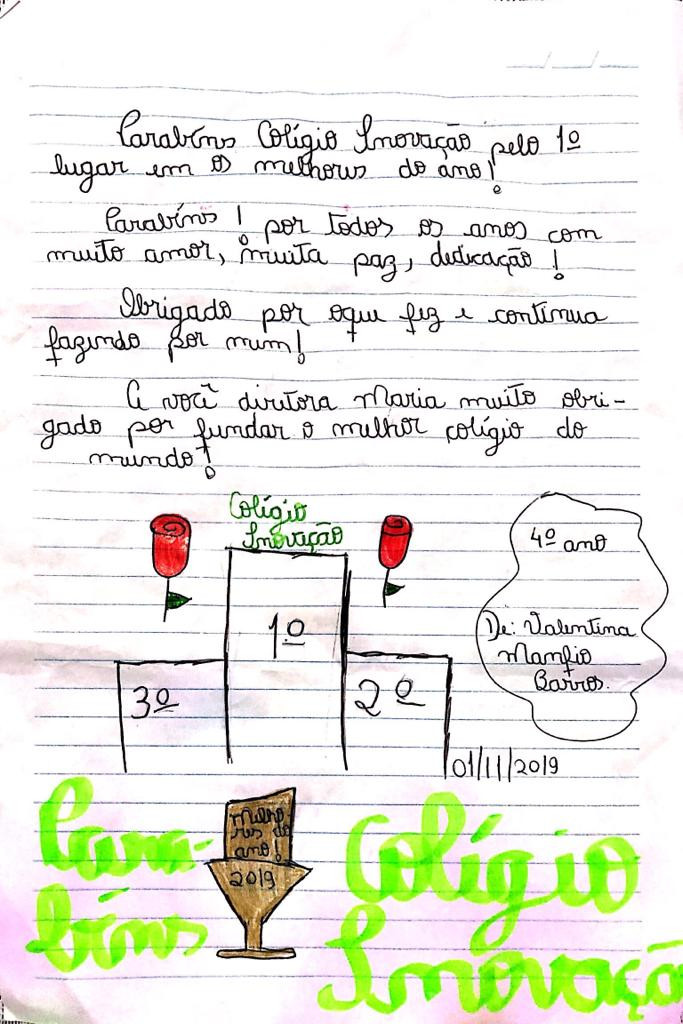 Parabéns Colégio Inovação pelo 1º
lugar em os melhores do ano!
Parabéns! por todos os anos com
muito amor, muita paz, dedicação!
Obrigado por oque fez e continua
fazendo por mim!
A você diretora Maria muito obri-
gado por fundar o melhor colégio do
mundo!
Colégio
Inovação
1º
3º
2º
4º ano
De: Valentina
Manfio
Barros.
01/11/2019
Melho
res do
ano!
2019
Para-
béns
Colégio
Inovação